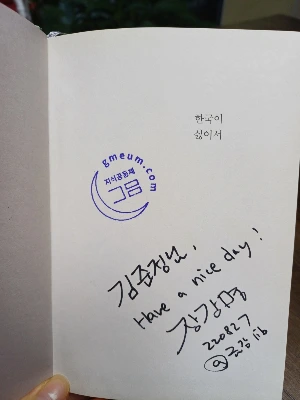 한국이
싫어서
gmeum.com
지식공동체
그믐
김준정님,
Have a nice day!
장강명
220827